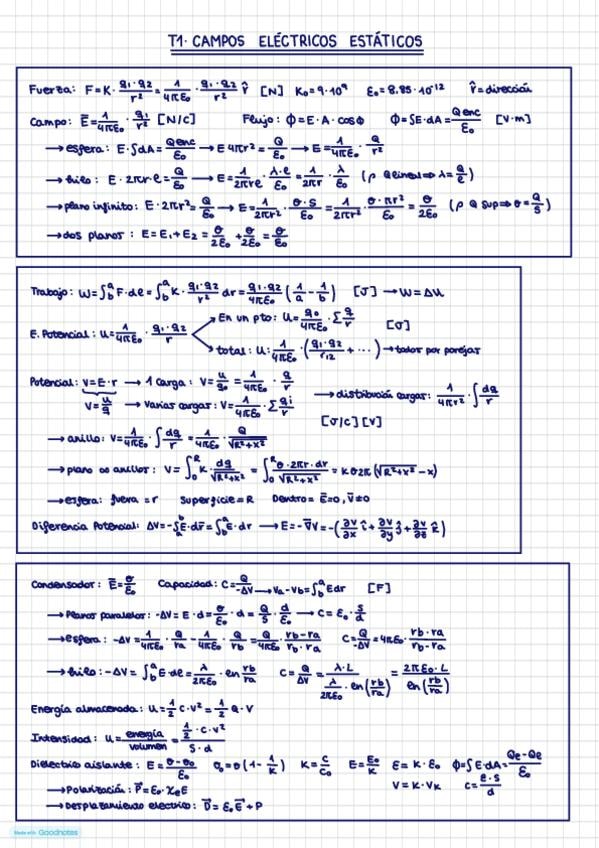 T1· CAMPOS ELÉCTRICOS ESTÁTICOS
Fuerza: F = K · q₁·q₂/r² = 1/4πε₀ · q₁·q₂/r² r̂ [N] K₀ = 9·10⁹ ε₀ = 8.85·10⁻¹² r̂ = dirección
Campo: E̅ = 1/4πε₀ · q₁/r² [N/C] Flujo: ϕ = E·A·cosϕ ϕ = ∫E·dA = Qenc/ε₀ [V·m]
→ esfera: E·∫dA = Qenc/ε₀ → E4πr² = Q/ε₀ → E = 1/4πε₀ · Q/r²
→ hilo: E·2πr·ℓ = Q/ε₀ → E = 1/2πrℓ · λ·ℓ/ε₀ = 1/2πr · λ/ε₀ (ρ Q lineal ⇒ λ = Q/ℓ)
→ plano infinito: E·2πr² = Q/ε₀ → E = 1/2πr² · σ·S/ε₀ = 1/2πr² · σ·πr²/ε₀ = σ/2ε₀ (ρ Q sup ⇒ σ = Q/S)
→ dos planos: E = E₁+E₂ = σ/2ε₀ + σ/2ε₀ = σ/ε₀
Trabajo: W = ∫ᵇₐ F·dℓ = ∫ᵇₐ K · q₁·q₂/r² dr = q₁·q₂/4πε₀ (1/a − 1/b) [J] → W = ΔU
E. Potencial: U = 1/4πε₀ · q₁·q₂/r
En un pto: U = q₀/4πε₀ · Σ q/r [J]
total: U = 1/4πε₀ · (q₁·q₂/r₁₂ + ···) → todos por parejas
Potencial: V = E·r → 1 carga: V = U/q₀ = 1/4πε₀ · q/r → distribución cargas: 1/4πr² · ∫dq/r
V = U/q → varias cargas: V = 1/4πε₀ · Σ qi/r [J/C] [V]
→ anillo: V = 1/4πε₀ · ∫dq/r = 1/4πε₀ · Q/√R²+x²
→ plano ∞ anillos: V = ∫₀ᴿ K · dq/√R²+x² = ∫₀ᴿ σ·2πr·dr/√R²+x² = Kσ2π(√R²+x² − x)
→ esfera: fuera = r Superficie = R Dentro = E̅=0, V̅≠0
Diferencia Potencial: ΔV = −∫ᵇₐ E·dr̅ = ∫ᵃb E·dr → E = −∇̅V = −(∂V/∂x î + ∂V/∂y ĵ + ∂V/∂z k̂)
Condensador: E̅ = σ/ε₀ Capacidad: C = Q/−ΔV → Va−Vb = ∫ᵇₐ Edr [F]
→ Planos paralelos: −ΔV = E·d = σ/ε₀ · d = Q/S · d/ε₀ → C = ε₀ · S/d
→ esfera: −ΔV = 1/4πε₀ · Q/ra − 1/4πε₀ · Q/rb = Q/4πε₀ · rb−ra/rb·ra C = Q/−ΔV = 4πε₀ · rb·ra/rb−ra
→ hilo: −ΔV = ∫ᵇₐ E·dℓ = λ/2πε₀ · ℓn rb/ra C = Q/ΔV = λ·L/λ/2πε₀ · ℓn(rb/ra) = 2πε₀·L/ℓn(rb/ra)
Energía almacenada: U = 1/2 C·V² = 1/2 Q·V
Intensidad: U = energía/volumen = 1/2·C·V²/S·d
Dieléctrico aislante: E = σ−σ₀/ε₀ σ₀ = σ(1 − 1/K) K = C/C₀ E = E₀/K ε = K·ε₀ ϕ = ∫E·dA = Qℓ−Qℓ/ε₀
→ Polarización: P̅ = ε₀·χₑE V = K·VK C = ε·S/d
→ Desplazamiento eléctrico: D̅ = ε₀E̅ + P
Made with Goodnotes